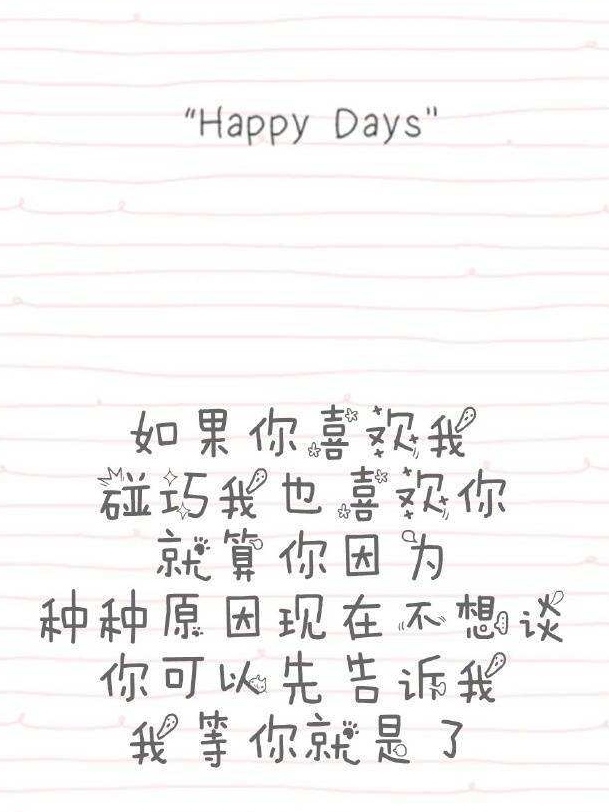 “Happy Days"
如果你喜欢我
碰巧我也喜欢你
就算你因为
种种原因现在不想谈
你可以先告诉我
我等你就是了